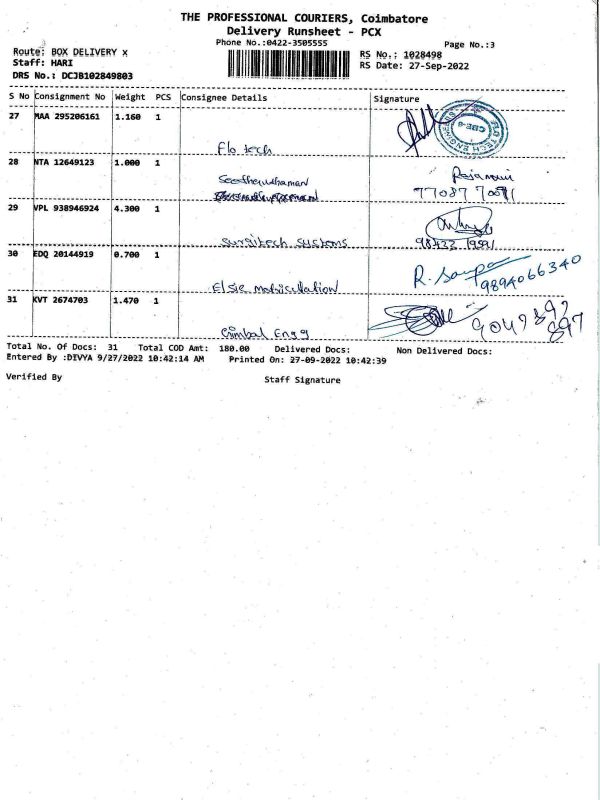 THE PROFESSIONAL COURIERS, Coimbatore
Delivery Runsheet - PCX
Phone No.:0422-3505555
Page No.:3
Route: BOX DELIVERY X
RS No.: 1028498
Staff: HARI
RS Date: 27-Sep-2022
DRS No.: DCJB102849803
S No Consignment No Weight PCS Consignee Details Signature
27 MAA 295206161 1.160 1
Flo tech
28 NTA 12649123 1.000 1
77087 70091
29 VPL 938946924 4.300 1
Surgitech systems
30 EDQ 20144919 0.700 1
Elsie matriculation
9894066340
31 KVT 2674703 1.470 1
Gimbal Engg
Total No. Of Docs: 31 Total COD Amt: 180.00 Delivered Docs: Non Delivered Docs:
Entered By :DIVYA 9/27/2022 10:42:14 AM Printed On: 27-09-2022 10:42:39
Verified By Staff Signature